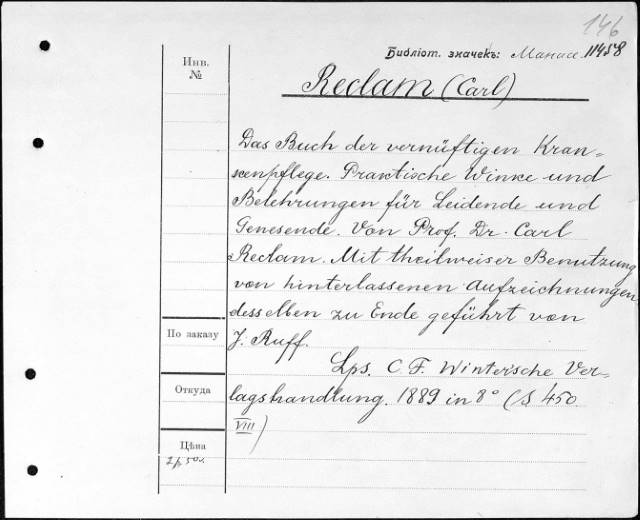 146
Библіот. значекъ: Манасс. 11458
Инв.
№
Reclam (Carl)
Das Buch der vernüftigen Kran=
kenpflege. Praktische Winke und
Belehrungen für Leidende und
Genesende. Von Prof. Dr. Carl
Reclam. Mit theilweiser Benutzung
von hinterlassenen Aufzeichnungen
desselben zu Ende geführt von
J. Ruff.
По заказу
Lps. C. F. Winter'sche Ver=
Откуда
lagshandlung. 1889 in 8° (S 450
VIII)
Цѣна
2 р. 50 к.